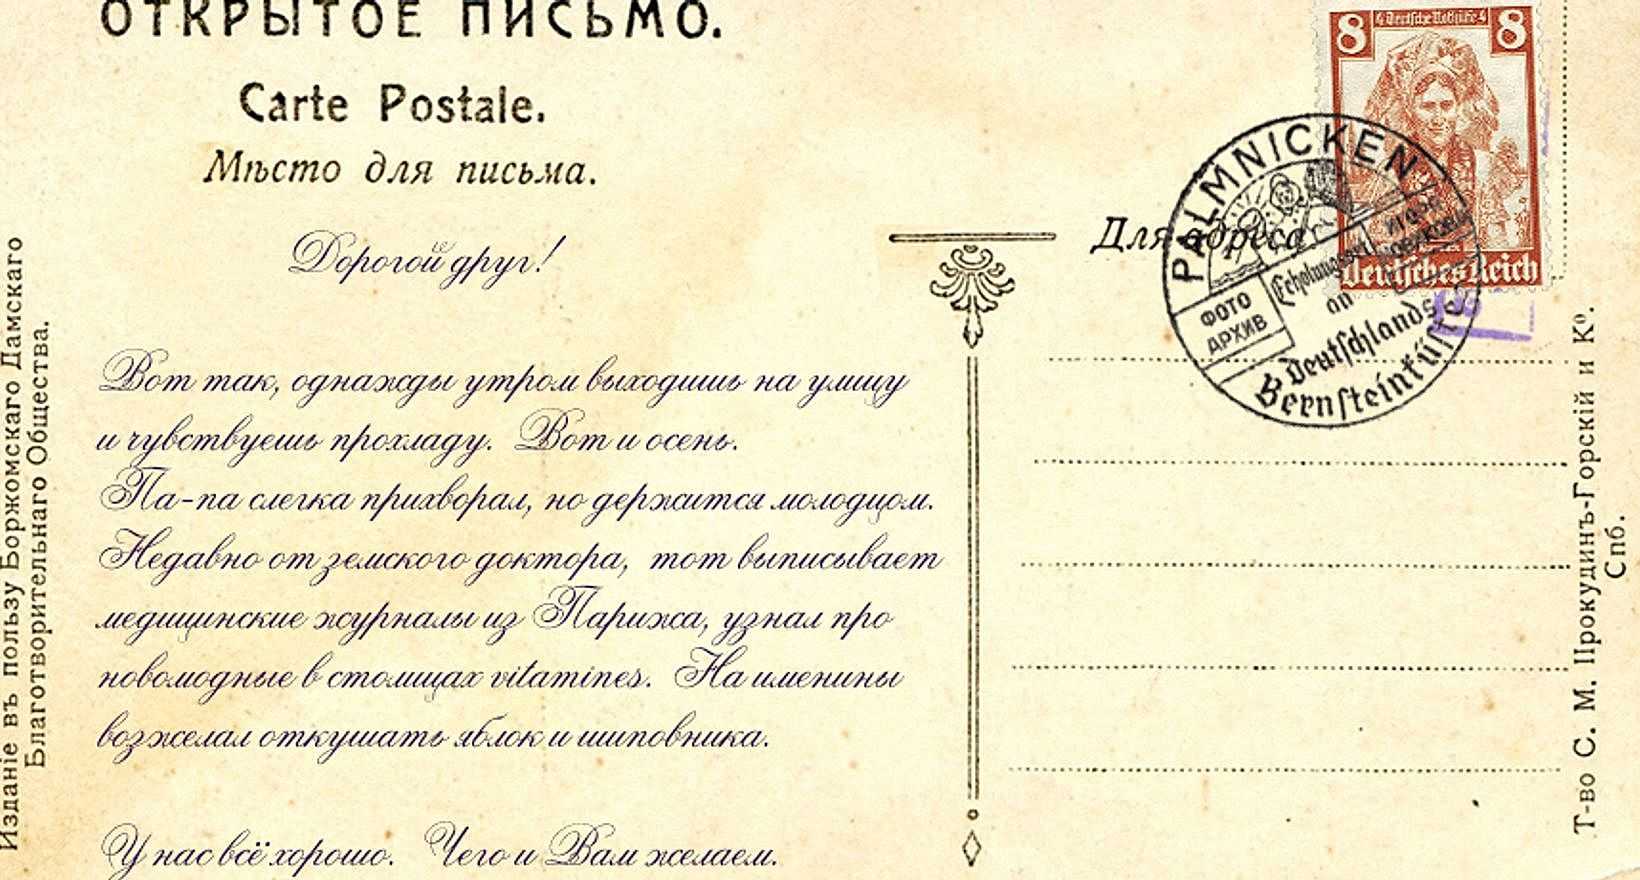 ОТКРЫТОЕ ПИСЬМО.
Carte Postale.
Мѣсто для письма.
Дорогой друг!
Вот так, однажды утром выходишь на улицу
и чувствуешь прохладу. Вот и осень.
Па-па слегка прихворал, но держится молодцом.
Недавно от земского доктора, тот выписывает
медицинские журналы из Парижа, узнал про
новомодные в столицах vitamines. На именины
возжелал откушать яблок и шиповника.
У нас всё хорошо. Чего и Вам желаем.
Изданіе въ пользу Боржомскаго Дамскаго
Благотворительнаго Общества.
8 Deutsche Nothilfe 8
Deutsches Reich
Для адреса
PALMNICKEN
ФОТО
АРХИВ
Erholungsort
an
Deutschlands
Bernsteinküste
Т-во С. М. Прокудинъ-Горскій и Кº.
Спб.